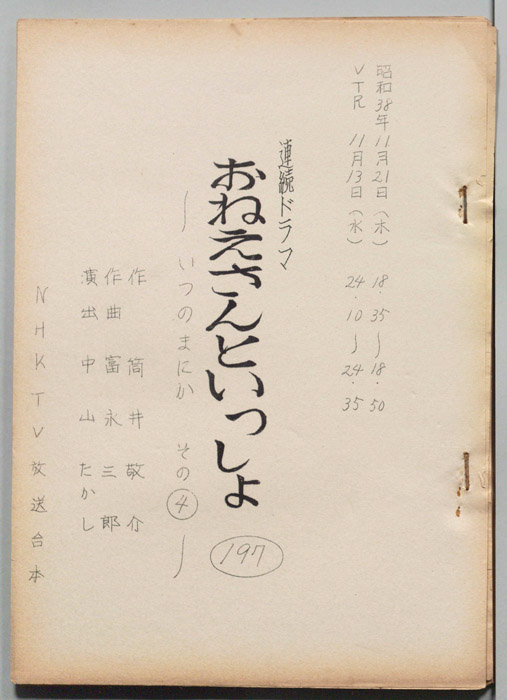 昭和38年11月21日(木) 18.35〜18.50
VTR 11月13日(水) 24.10〜24.35
連続ドラマ
おねえさんといっしょ
197
〜いつのまにか その④〜
作 筒井敬介
作曲 富永三郎
演出 中山たかし
NHKTV放送台本